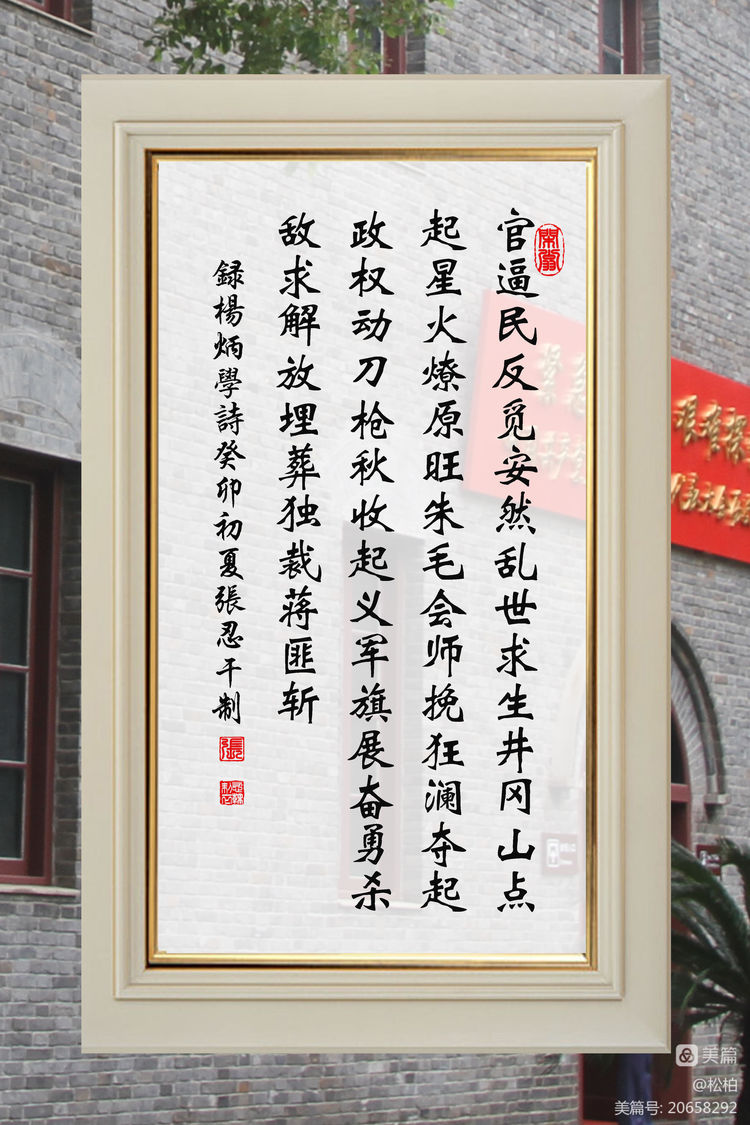 官逼民反觅安然乱世求生井冈山点
起星火燎原旺朱毛会师挽狂澜夺起
政权动刀枪秋收起义军旗展奋勇杀
敌求解放埋葬独裁蒋匪斩
録楊炳學詩癸卯初夏張忍干制
張
美篇
@松柏
美篇号: 20658292